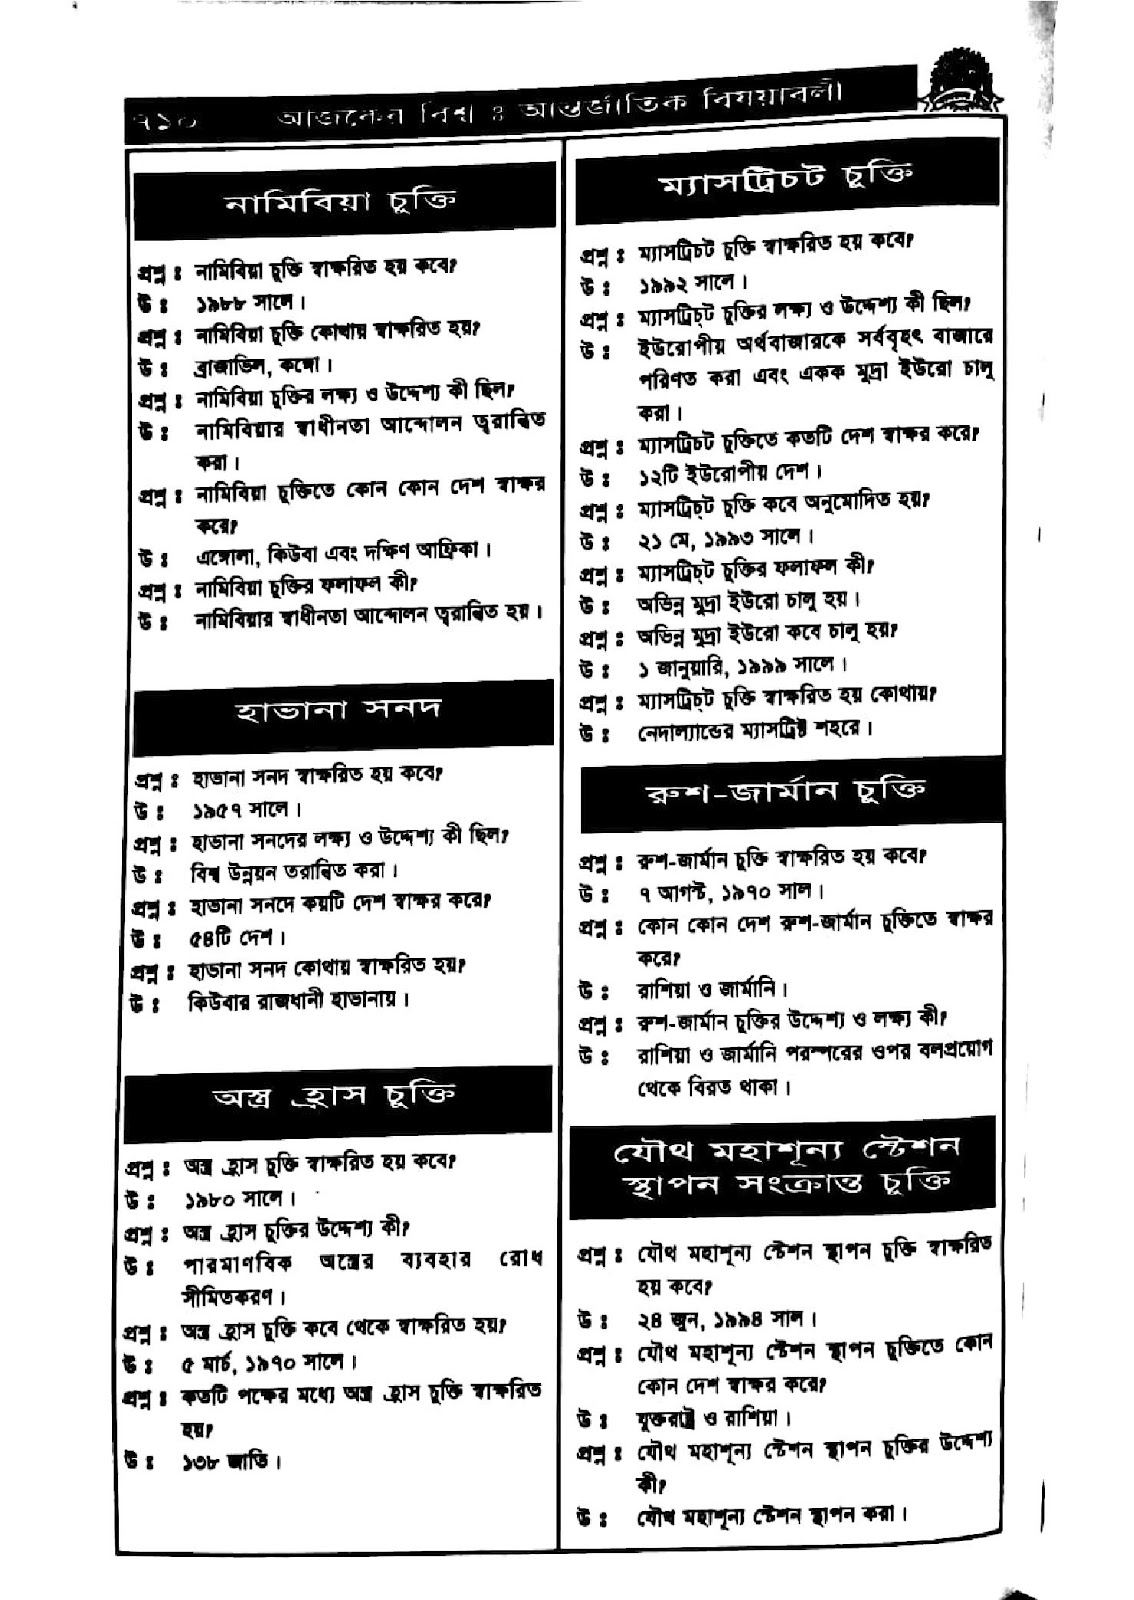 ৭১০ আজকের বিশ্ব ঃ আন্তর্জাতিক বিষয়াবলী
নামিবিয়া চুক্তি
প্রশ্ন ঃ নামিবিয়া চুক্তি স্বাক্ষরিত হয় কবে?
উ ঃ ১৯৮৮ সালে।
প্রশ্ন ঃ নামিবিয়া চুক্তি কোথায় স্বাক্ষরিত হয়?
উ ঃ ব্রাজাভিল, কঙ্গো।
প্রশ্ন ঃ নামিবিয়া চুক্তির লক্ষ্য ও উদ্দেশ্য কী ছিল?
উ ঃ নামিবিয়ার স্বাধীনতা আন্দোলন ত্বরান্বিত
করা।
প্রশ্ন ঃ নামিবিয়া চুক্তিতে কোন কোন দেশ স্বাক্ষর
করে?
উ ঃ এঙ্গোলা, কিউবা এবং দক্ষিণ আফ্রিকা।
প্রশ্ন ঃ নামিবিয়া চুক্তির ফলাফল কী?
উ ঃ নামিবিয়ার স্বাধীনতা আন্দোলন ত্বরান্বিত হয়।
হাভানা সনদ
প্রশ্ন ঃ হাভানা সনদ স্বাক্ষরিত হয় কবে?
উ ঃ ১৯৫৭ সালে।
প্রশ্ন ঃ হাভানা সনদের লক্ষ্য ও উদ্দেশ্য কী ছিল?
উ ঃ বিশ্ব উন্নয়ন তরান্বিত করা।
প্রশ্ন ঃ হাভানা সনদে কয়টি দেশ স্বাক্ষর করে?
উ ঃ ৫৪টি দেশ।
প্রশ্ন ঃ হাভানা সনদ কোথায় স্বাক্ষরিত হয়?
উ ঃ কিউবার রাজধানী হাভানায়।
অস্ত্র হ্রাস চুক্তি
প্রশ্ন ঃ অস্ত্র হ্রাস চুক্তি স্বাক্ষরিত হয় কবে?
উ ঃ ১৯৮০ সালে।
প্রশ্ন ঃ অস্ত্র হ্রাস চুক্তির উদ্দেশ্য কী?
উ ঃ পারমাণবিক অস্ত্রের ব্যবহার রোধ
সীমিতকরণ।
প্রশ্ন ঃ অস্ত্র হ্রাস চুক্তি কবে থেকে স্বাক্ষরিত হয়?
উ ঃ ৫ মার্চ, ১৯৭০ সালে।
প্রশ্ন ঃ কতটি পক্ষের মধ্যে অস্ত্র হ্রাস চুক্তি স্বাক্ষরিত
হয়?
উ ঃ ১৩৮ জাতি।
ম্যাসট্রিচট চুক্তি
প্রশ্ন ঃ ম্যাসট্রিচট চুক্তি স্বাক্ষরিত হয় কবে?
উ ঃ ১৯৯২ সালে।
প্রশ্ন ঃ ম্যাসট্রিচ্ট চুক্তির লক্ষ্য ও উদ্দেশ্য কী ছিল?
উ ঃ ইউরোপীয় অর্থবাজারকে সর্ববৃহৎ বাজারে
পরিণত করা এবং একক মুদ্রা ইউরো চালু
করা।
প্রশ্ন ঃ ম্যাসট্রিচট চুক্তিতে কতটি দেশ স্বাক্ষর করে?
উ ঃ ১২টি ইউরোপীয় দেশ।
প্রশ্ন ঃ ম্যাসট্রিচ্ট চুক্তি কবে অনুমোদিত হয়?
উ ঃ ২১ মে, ১৯৯৩ সালে।
প্রশ্ন ঃ ম্যাসট্রিচ্ট চুক্তির ফলাফল কী?
উ ঃ অভিন্ন মুদ্রা ইউরো চালু হয়।
প্রশ্ন ঃ অভিন্ন মুদ্রা ইউরো কবে চালু হয়?
উ ঃ ১ জানুয়ারি, ১৯৯৯ সালে।
প্রশ্ন ঃ ম্যাসট্রিচ্ট চুক্তি স্বাক্ষরিত হয় কোথায়?
উ ঃ নেদাল্যান্ডের ম্যাসট্রিষ্ট শহরে।
রুশ-জার্মান চুক্তি
প্রশ্ন ঃ রুশ-জার্মান চুক্তি স্বাক্ষরিত হয় কবে?
উ ঃ ৭ আগস্ট, ১৯৭০ সাল।
প্রশ্ন ঃ কোন কোন দেশ রুশ-জার্মান চুক্তিতে স্বাক্ষর
করে?
উ ঃ রাশিয়া ও জার্মানি।
প্রশ্ন ঃ রুশ-জার্মান চুক্তির উদ্দেশ্য ও লক্ষ্য কী?
উ ঃ রাশিয়া ও জার্মানি পরস্পরের ওপর বলপ্রয়োগ
থেকে বিরত থাকা।
যৌথ মহাশূন্য স্টেশন
স্থাপন সংক্রান্ত চুক্তি
প্রশ্ন ঃ যৌথ মহাশূন্য স্টেশন স্থাপন চুক্তি স্বাক্ষরিত
হয় কবে?
উ ঃ ২৪ জুন, ১৯৯৪ সাল।
প্রশ্ন ঃ যৌথ মহাশূন্য স্টেশন স্থাপন চুক্তিতে কোন
কোন দেশ স্বাক্ষর করে?
উ ঃ যুক্তরাষ্ট্র ও রাশিয়া।
প্রশ্ন ঃ যৌথ মহাশূন্য স্টেশন স্থাপন চুক্তির উদ্দেশ্য
কী?
উ ঃ যৌথ মহাশূন্য স্টেশন স্থাপন করা।